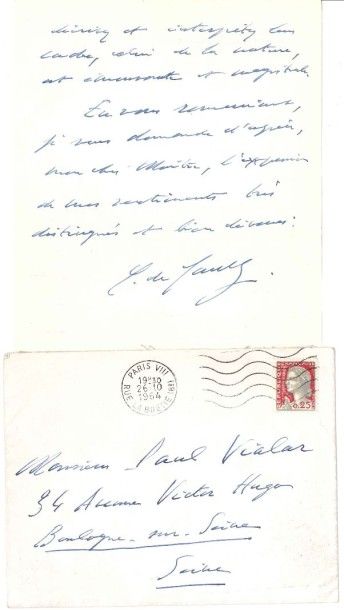 décrivez et interprétez leur
cadre, celui de la nature,
est émouvante et magistrale.
En vous remerciant,
je vous demande d'agréer,
mon cher Maître, l'expression
de mes sentiments très
distingués et bien dévoués.
C. de Gaulle.
PARIS VIII
19H30
26-10
1964
RUE LA BOETIE (8E)
0,25
Monsieur Paul Vialar
34 Avenue Victor Hugo
Boulogne-sur-Seine
Seine